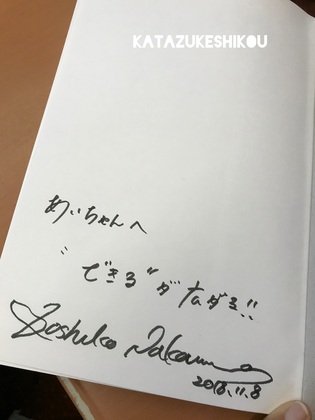 KATAZUKESHIKOU
めいちゃんへ
〝できる〟がなが る!!
Yoshiko Nakamura
2018.11.8